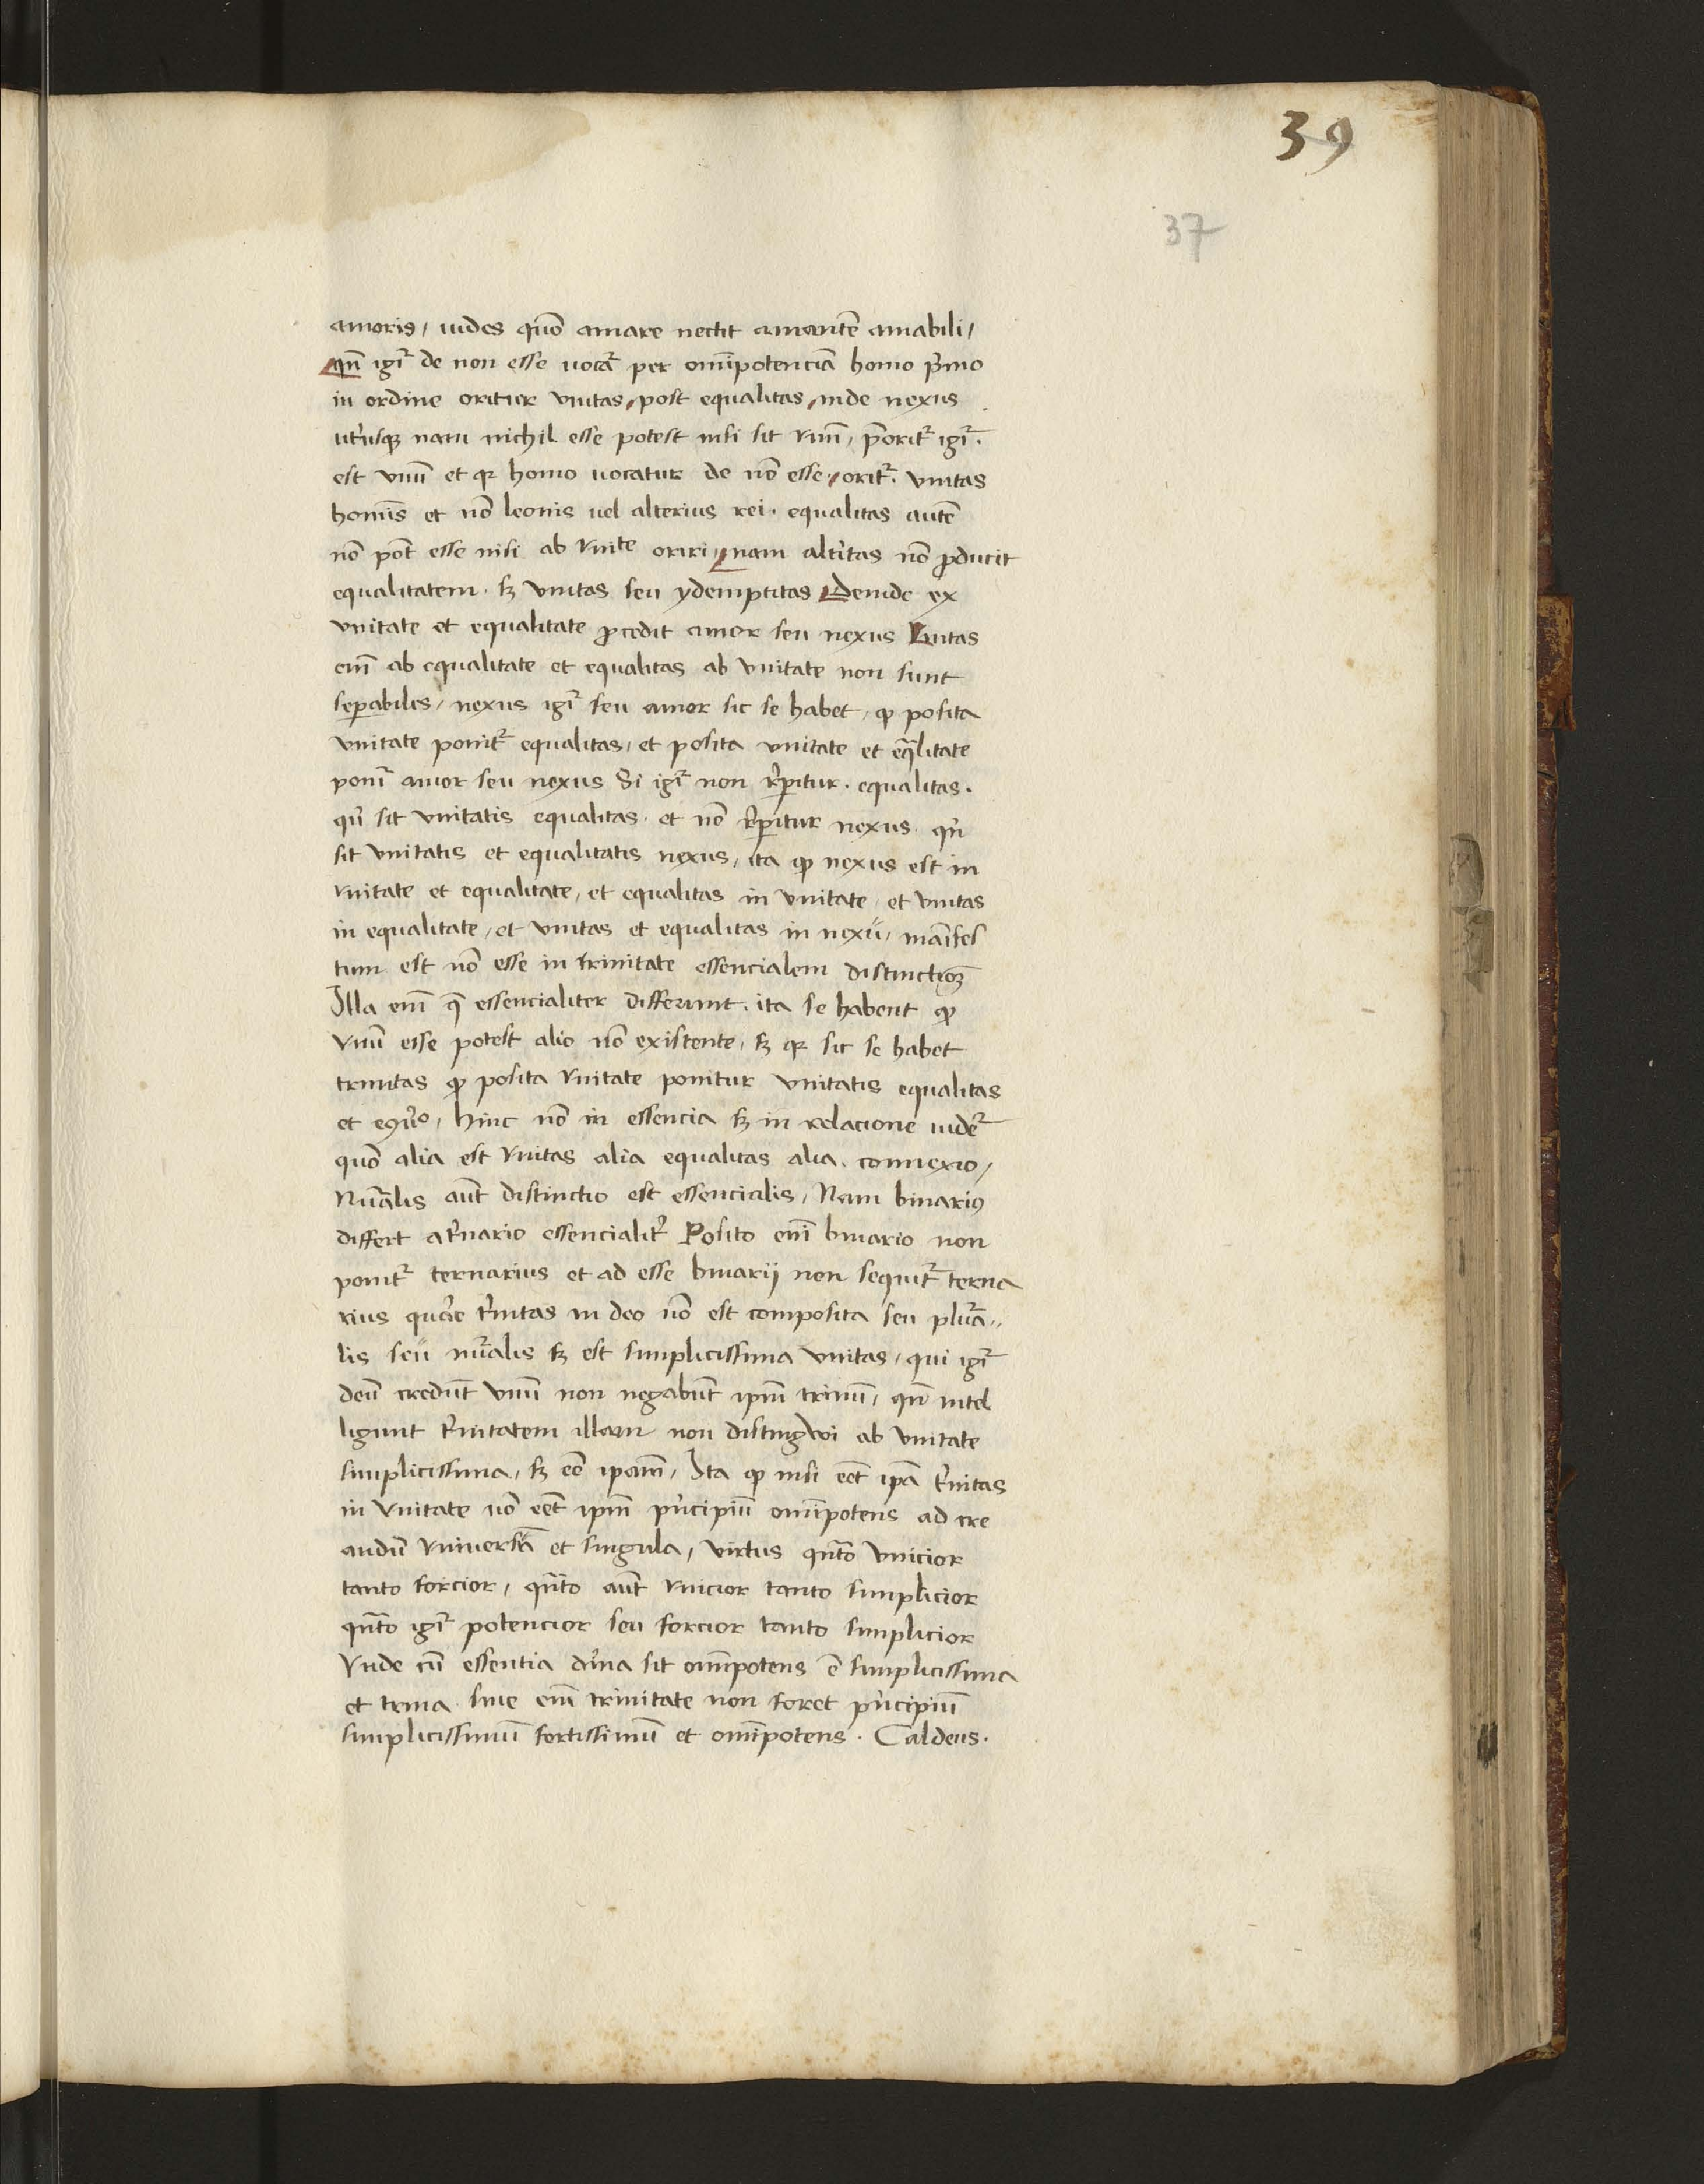 39
37
amoris / uides quo᷒ amare nectit amantē amabili /
qn̄ igr̄ de non esse uocat᷑ per om̄ipotenciā homo p̄mo
in ordine oritur vnitas / post equalitas / inde nexus
utriusq̨ nam nichil esse potest nisi sit vnū / p̄orit᷑ igr̄ .
est vnū et qr homo uocatur de nō esse / orit᷑ . vnitas
homīs et nō leonis uel alterius rei . equalitas autē
nō pōt esse nisi ab vnite oriri / nam alt̓itas nō ꝓducit
equalitatem . sꝫ vnitas seu ydemptitas Deinde ex
vnitate et equalitate ꝓcedit amor seu nexus Vnitas
enī ab equalitate et equalitas ab vnitate non sunt
seꝑabiles / nexus igr̄ seu amor sic se habet / ꝙ posita
vnitate ponit᷑ equalitas / et posita vnitate et eq̄litate
ponit᷑ amor seu nexus Si igr̄ non r̓ꝑitur . equalitas .
qn̓ sit vnitatis equalitas . et nō r̓ꝑitur nexus . qn̓
sit vnitatis et equalitatis nexus / ita ꝙ nexus est in
vnitate et equalitate / et equalitas in vnitate / et vnitas
in equalitate / et vnitas et equalitas in nexu / māifes
tum est nō esse in trinitate essencialem distinctioꝫ
Illa enī q̄ essencialiter differunt . ita se habent ꝙ
vnū esse potest alio nō existente / sꝫ qr sic se habet
trinitas ꝙ posita vnitate ponitur vnitatis equalitas
et eꝯ̓o / hinc nō in essencia sꝫ in relacione uidet᷑
quō alia est vnitas alia equalitas alia . connexio /
Nūalis aūt distinctio est essencialis / Nam binariꝯ
differt a t̓nario essencialit̓ Posito enī binario non
ponit᷑ ternarius et ad esse binarij non sequit᷑ terna
rius quare t̓nitas in deo nō est composita seu plura
lis seu nūalis sꝫ est simplicissima vnitas / qui igr̄
deū credūt vnū non negabūt ipm̄ trinū / qn̄ intel
ligunt t̓nitatem illam non distingwi ab vnitate
simplicissima / sꝫ eē ipam̄ / Ita ꝙ nisi eēt ipā t̓nitas
in vnitate nō eēt ipm̄ pn̓cipiū om̄ipotens ad cre
andū vniuersa et singula / virtus qn̄to vnicior
tanto forcior / qn̄to aūt vnicior tanto simplicior
qn̄to igr̄ potencior seu forcior tanto simplicior
Vnde cū essentia diīna sit om̄ipotens ē simplicissima
et trina . sine enī trinitate non foret pn̓cipiū
simplicissimū fortissimū et om̄ipotens . Caldeus .